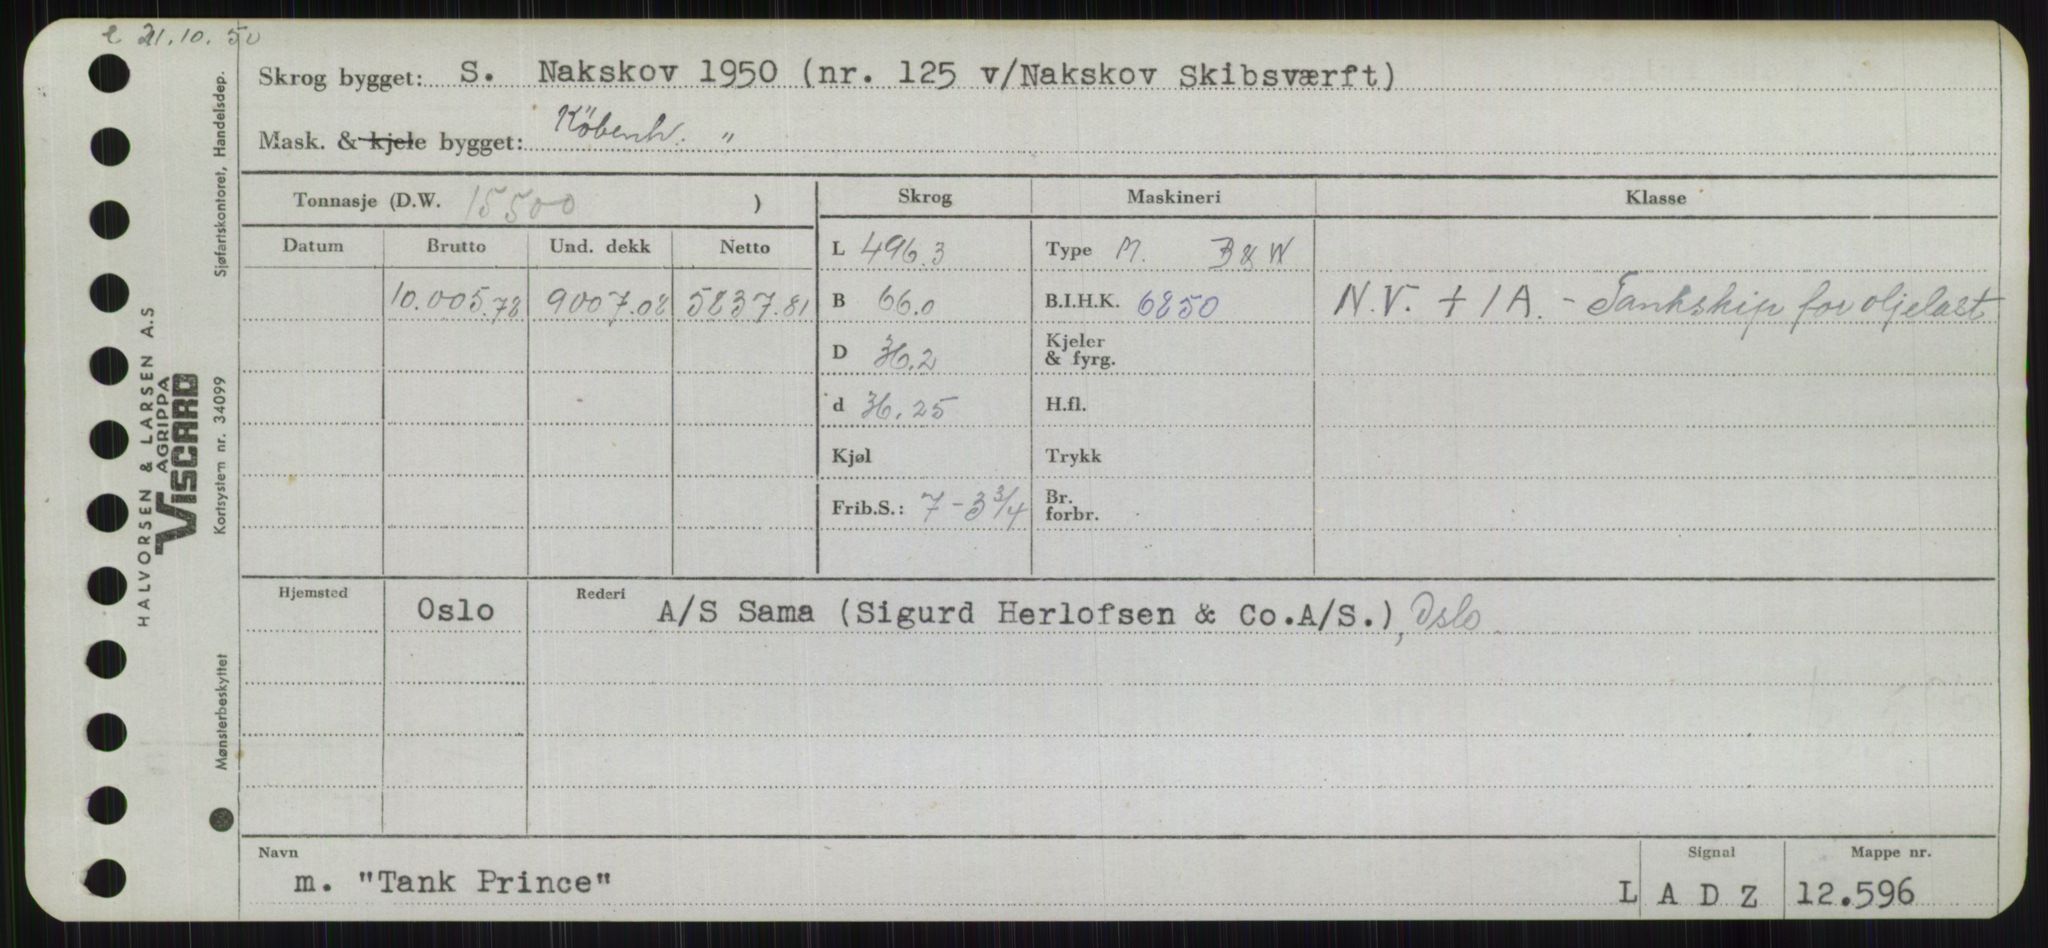 e 21.10.50
Skrog bygget: S. Nakskov 1950 (nr. 125 v/Nakskov Skibsværft)
Mask. & kjele bygget: Københ. "
Tonnasje (D.W. 15500 )
Skrog Maskineri Klasse
Datum Brutto Und. dekk Netto
L 496.3 Type M. B & W
10.005.78 9007.08 5237.81 B 66.0 B.I.H.K. 6250 N.V. + 1A. - Tankskip for oljelast
D 36.2 Kjeler & fyrg.
d 36.25 H.fl.
Kjøl Trykk
Frib.S.: 7-3 3/4 Br. forbr.
Hjemsted Oslo Rederi A/S Sama (Sigurd Herlofsen & Co.A/S.), Oslo
Navn m. "Tank Prince"
Signal L A D Z
Mappe nr. 12.596
HALVORSEN & LARSEN A.S
AGRIPPA
VISCARD
Sjøfartskontoret, Handelsdep.
Kortsystem nr. 34099
Mønsterbeskyttet